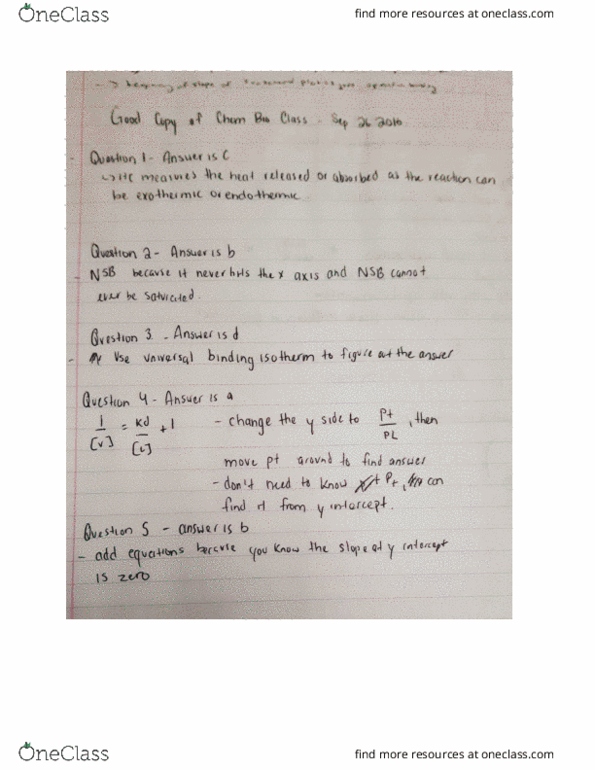 OneClass
find more resources at oneclass.com
Good Copy of Chem Bio Class - Sep 26 2016
- Question 1 - Answer is C
measures the heat released or absorbed as the reaction can
be exothermic or endothermic
Question 2 - Answer is b
- NSB because it never hits the x axis and NSB cannot
ever be saturated.
Question 3 - Answer is d
- Use universal binding isotherm to figure out the answer
Question 4 - Answer is a
1/[v] = Kd/[L] + 1 - change the y side to Pt/PL, then
move pt around to find answer
- don't need to know Pt, can
find it from y intercept.
Question 5 - answer is b
- add equations because you know the slope at y intercept
is zero
OneClass
find more resources at oneclass.com